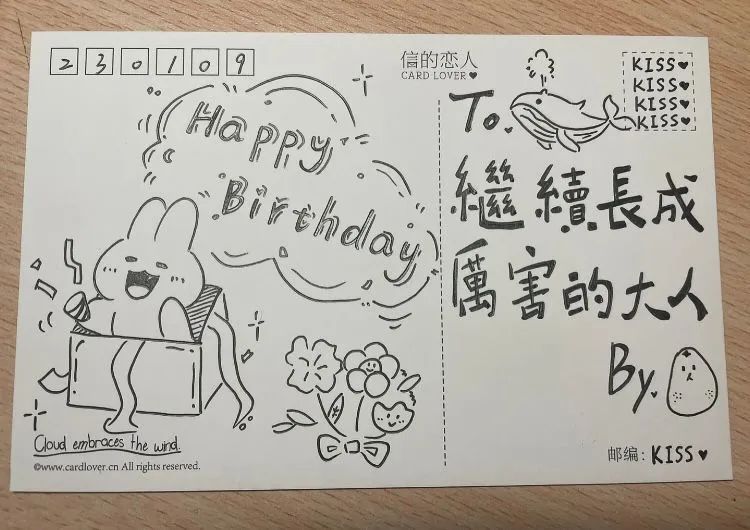 230109
信的恋人
CARD LOVER♥
KISS♥
KISS♥
KISS♥
KISS♥
Happy
Birthday
To.
繼續長成
厲害的大人
By.
Cloud embraces the wind.
©www.cardlover.cn All rights reserved.
邮编: KISS♥